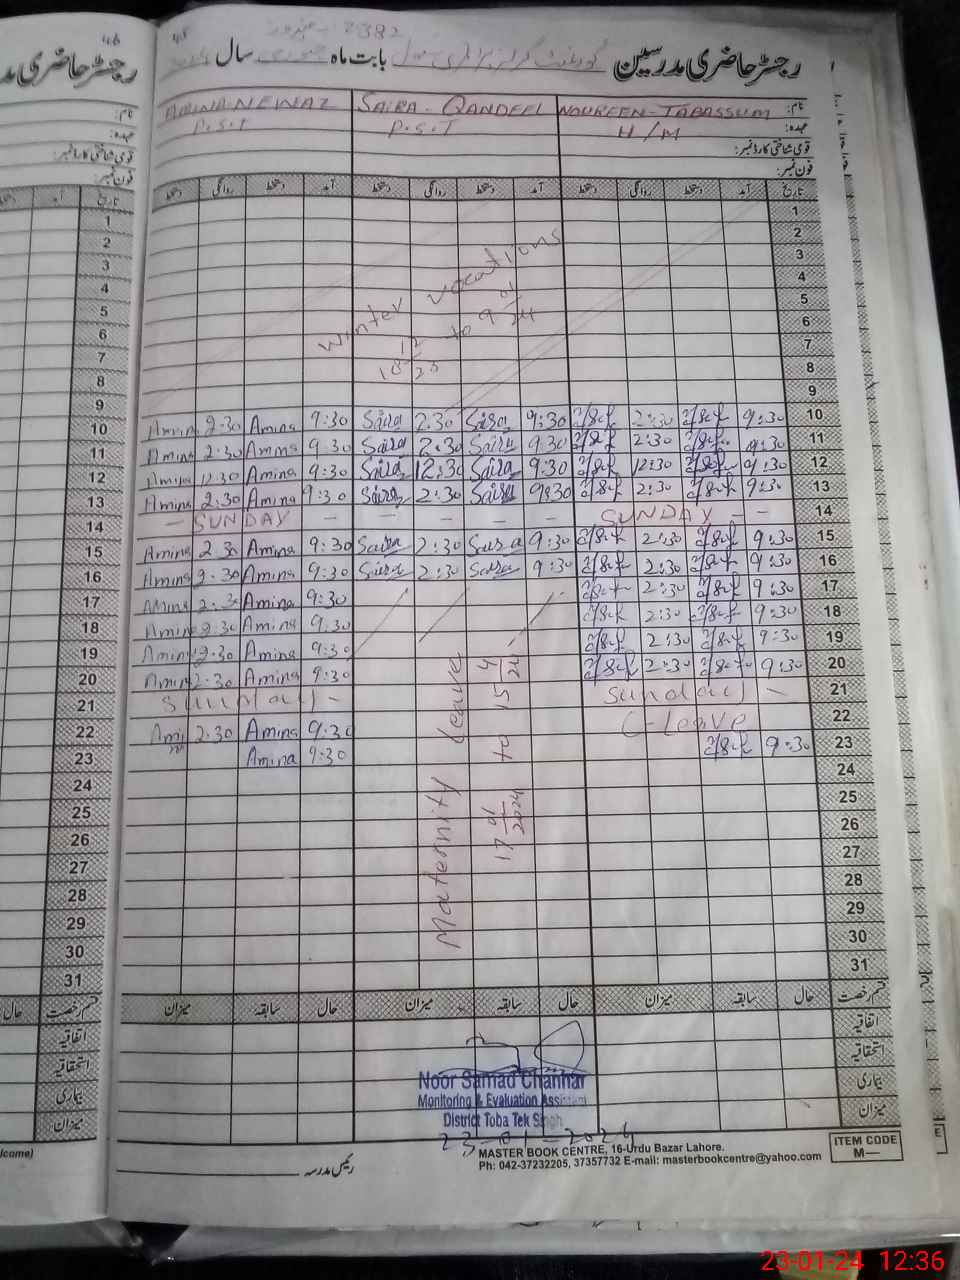 46
45
2382
رجسٹر حاضری مدرسین گورنمنٹ گرلز پرائمری سکول بابت ماہ جنوری سال
نام: NAUREEN-TABASSUM SAIRA-QANDEEL AMINA NEWAZ
عہدہ: H/M P.S.T P.S.T
قومی شناختی کارڈ نمبر:
فون نمبر:
تاریخ آمد دستخط روانگی دستخط آمد دستخط روانگی دستخط آمد دستخط روانگی دستخط
1
2
3
4
5
6
7
8
9
winter vocations
18 12/23 to 9 01/24
Amina 2:30 Amina 9:30 Saira 2:30 Saira 9:30 2:30 9:30 10
Amina 2:30 Amina 9:30 Saira 2:30 Saira 9:30 2:30 9:30 11
Amina 12:30 Amina 9:30 Saira 12:30 Saira 9:30 12:30 9:30 12
Amina 2:30 Amina 9:30 Saira 2:30 Saira 9:30 2:30 9:30 13
— SUNDAY — — — — — SUNDAY — — 14
Amina 2:30 Amina 9:30 Saira 2:30 Saira 9:30 2:30 9:30 15
Amina 2:30 Amina 9:30 Saira 2:30 Saira 9:30 2:30 9:30 16
Amina 2:30 Amina 9:30 2:30 9:30 17
Amina 2:30 Amina 9:30 2:30 9:30 18
Amina 2:30 Amina 9:30 2:30 9:30 19
Amina 2:30 Amina 9:30 2:30 9:30 20
Sunday — Sunday — 21
Amina 2:30 Amina 9:30 C-Leave 22
Amina 9:30 9:30 23
Maternity leave
17 01/2024 to 15 4/24
24
25
26
27
28
29
30
31
قسم رخصت حال سابقہ میزان حال سابقہ میزان حال سابقہ میزان
اتفاقیہ
استحقاقیہ
بیماری
میزان
Noor Samad Channar
Monitoring & Evaluation Assistant
District Toba Tek Singh
23-01-2024
MASTER BOOK CENTRE, 16-Urdu Bazar Lahore.
Ph: 042-37232205, 37357732 E-mail: masterbookcentre@yahoo.com
ITEM CODE
M—
رئیس مدرسہ
23-01-24 12:36